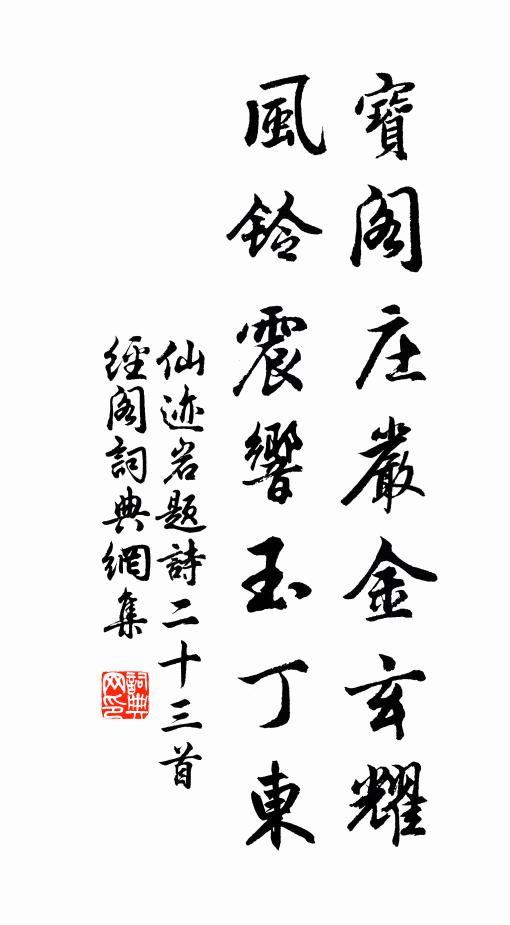 寶閣庄嚴金玄耀
風鈴震響玉丁東
仙迹岩题詩二十三首
經閣詞典網集
詞典网印